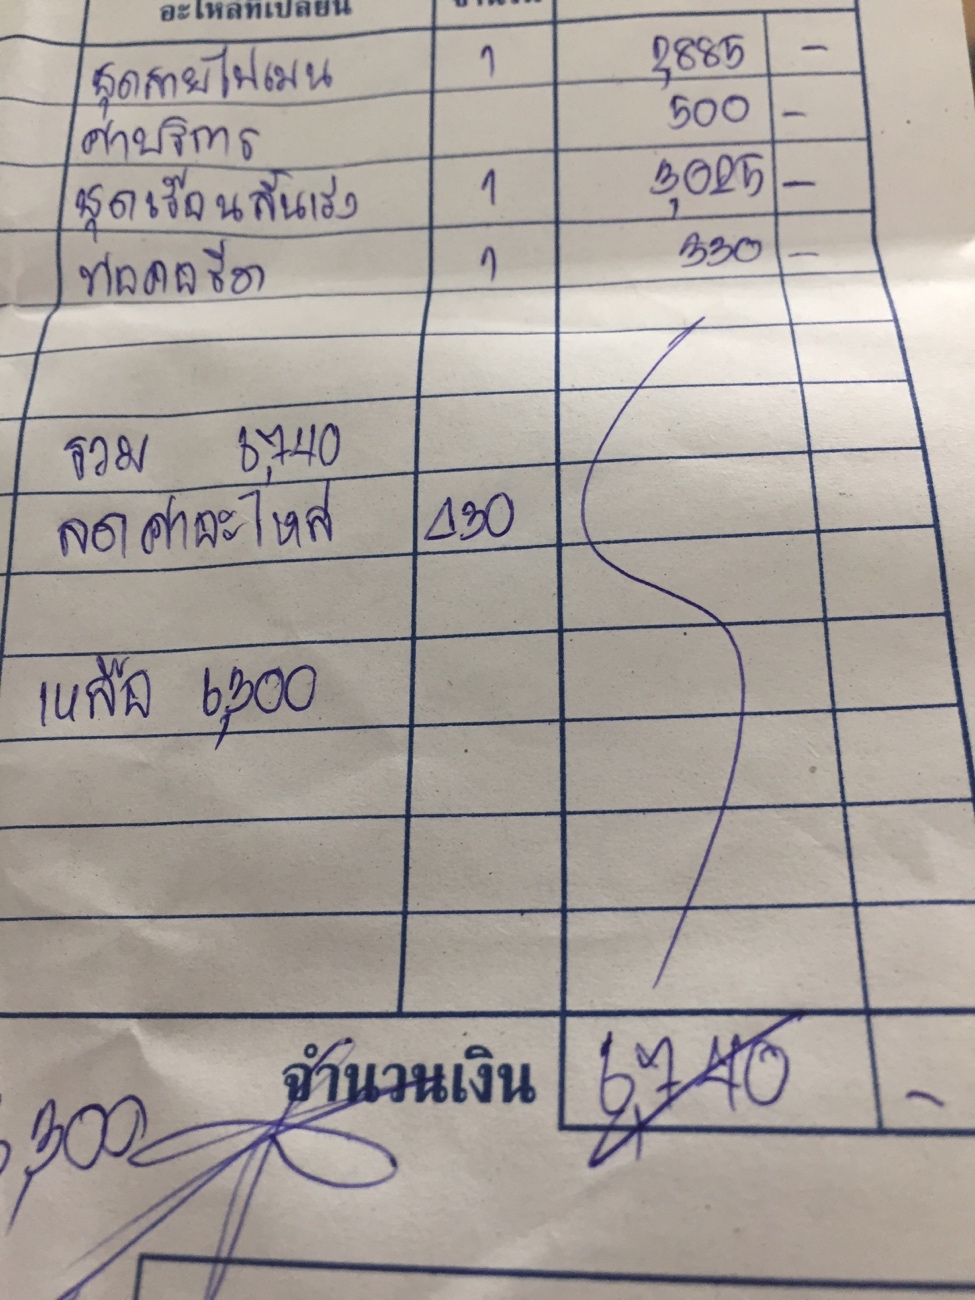 อะไหล่ที่เปลี่ยน จำนวน
ชุดสายไฟเมน 1 2,885 -
ค่าบริการ 500 -
ชุดเรือนลิ้นเร่ง 1 3,025 -
1 330 -
รวม 6,740
ลดค่าอะไหล่ 430
เหลือ 6,300
จำนวนเงิน 6,740 -
6,300